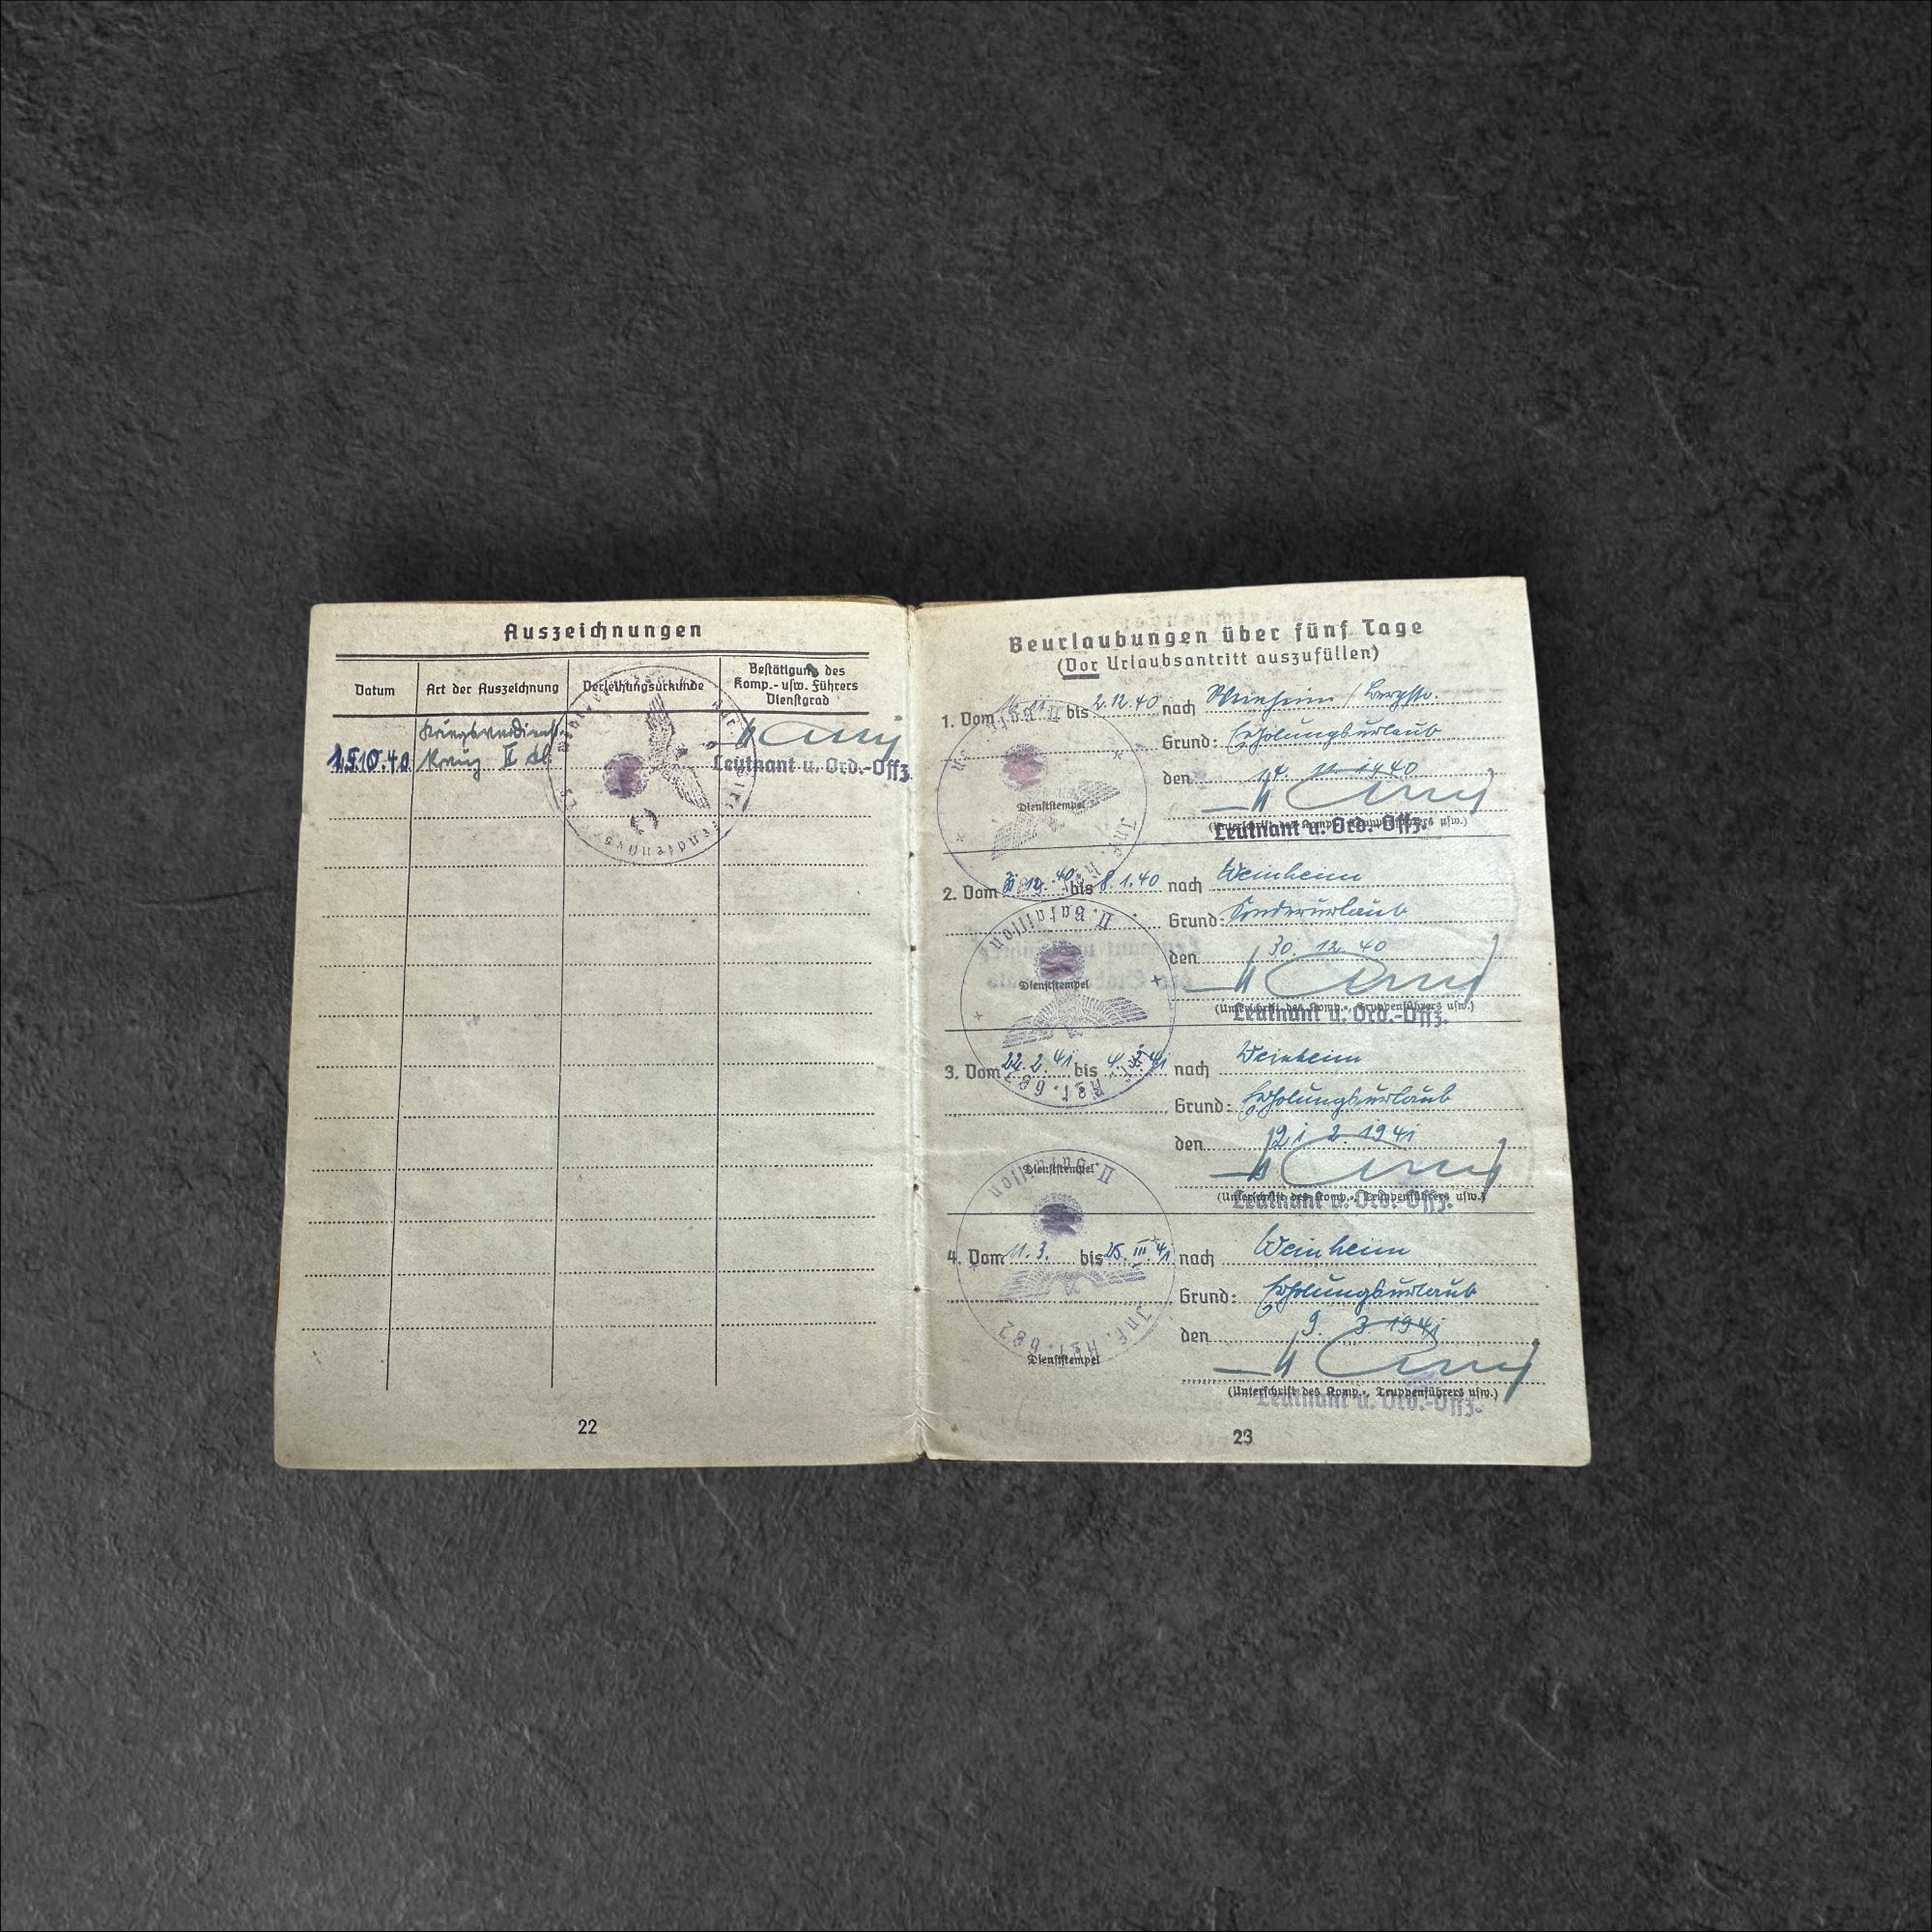 Auszeichnungen
Datum
Art der Auszeichnung
Verleihungsurkunde
Bestätigung des
Komp.- usw. Führers
Dienstgrad
Kriegsverdienst-
15.10.40 Kreuz II Kl
Leutnant u. Ord.-Offz.
22
Beurlaubungen über fünf Tage
(Vor Urlaubsantritt auszufüllen)
1. Vom bis 2.12.40 nach Weinheim / Bergstr.
Grund: Erholungsurlaub
den 14. 11. 1940
Dienststempel
(Unterschrift des Komp.-, Truppenführers usw.)
Leutnant u. Ord.-Offz.
Inf. R
2. Vom 12. 40 bis 8.1.40 nach Weinheim
Grund: Sonderurlaub
II. Bataillon
den 30. 12. 40
Dienststempel
(Unterschrift des Komp.-, Truppenführers usw.)
Leutnant u. Ord.-Offz.
3. Vom 22. 2. 41 bis 41 nach Weinheim
Rgt. 682
Grund: Erholungsurlaub
den 21. 2. 1941
Dienststempel
II. Bataillon
(Unterschrift des Komp.-, Truppenführers usw.)
Leutnant u. Ord.-Offz.
4. Vom 11. 3. bis 25. III. 41 nach Weinheim
Grund: Erholungsurlaub
den 9. 3. 1941
Inf. Rgt. 682
Dienststempel
(Unterschrift des Komp.-, Truppenführers usw.)
Leutnant u. Ord.-Offz.
23